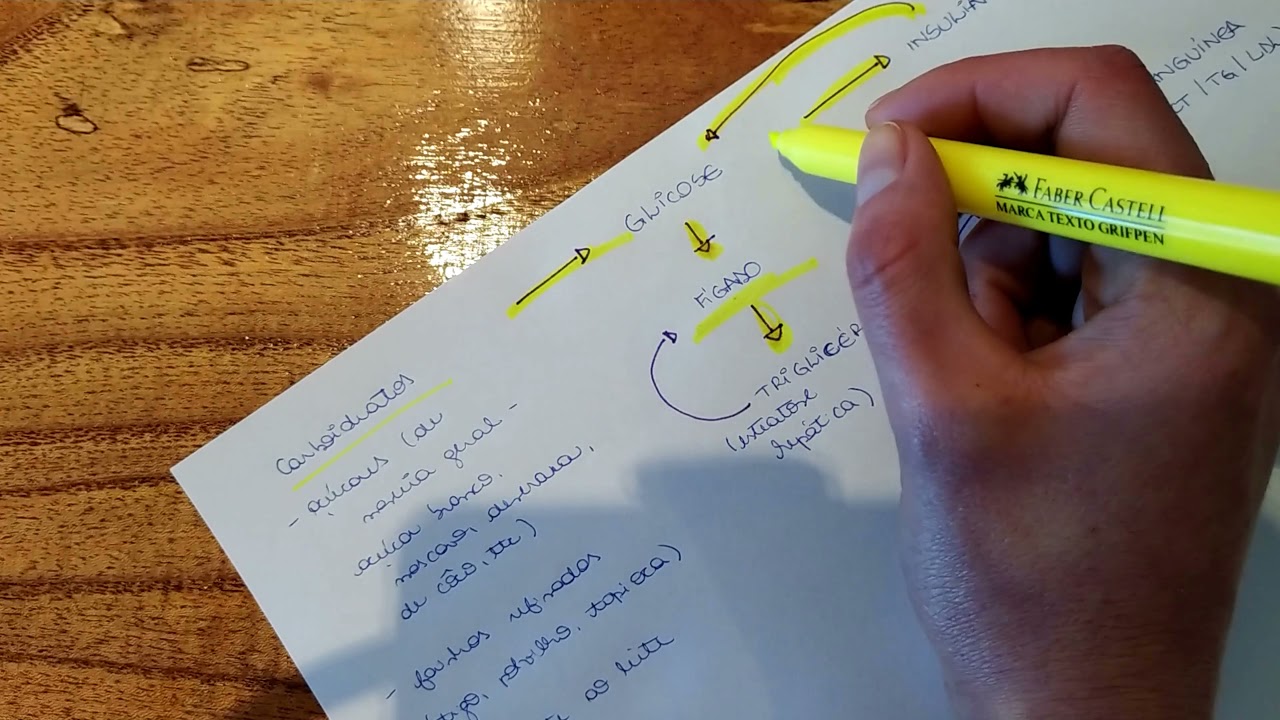 INSULIN
NGUÍNEA
CT / TG / LDL
GLICOSE
FÍGADO
TRIGLICÉR
(esteatose
hepática)
Carboidratos
- açúcares (de
maneira geral -
açúcar branco,
mascavo, demerara,
de côco, etc)
- farinhas refinadas
trigo, polvilho, tapioca)
ao leite
FABER CASTELL
MARCA TEXTO GRIFPEN